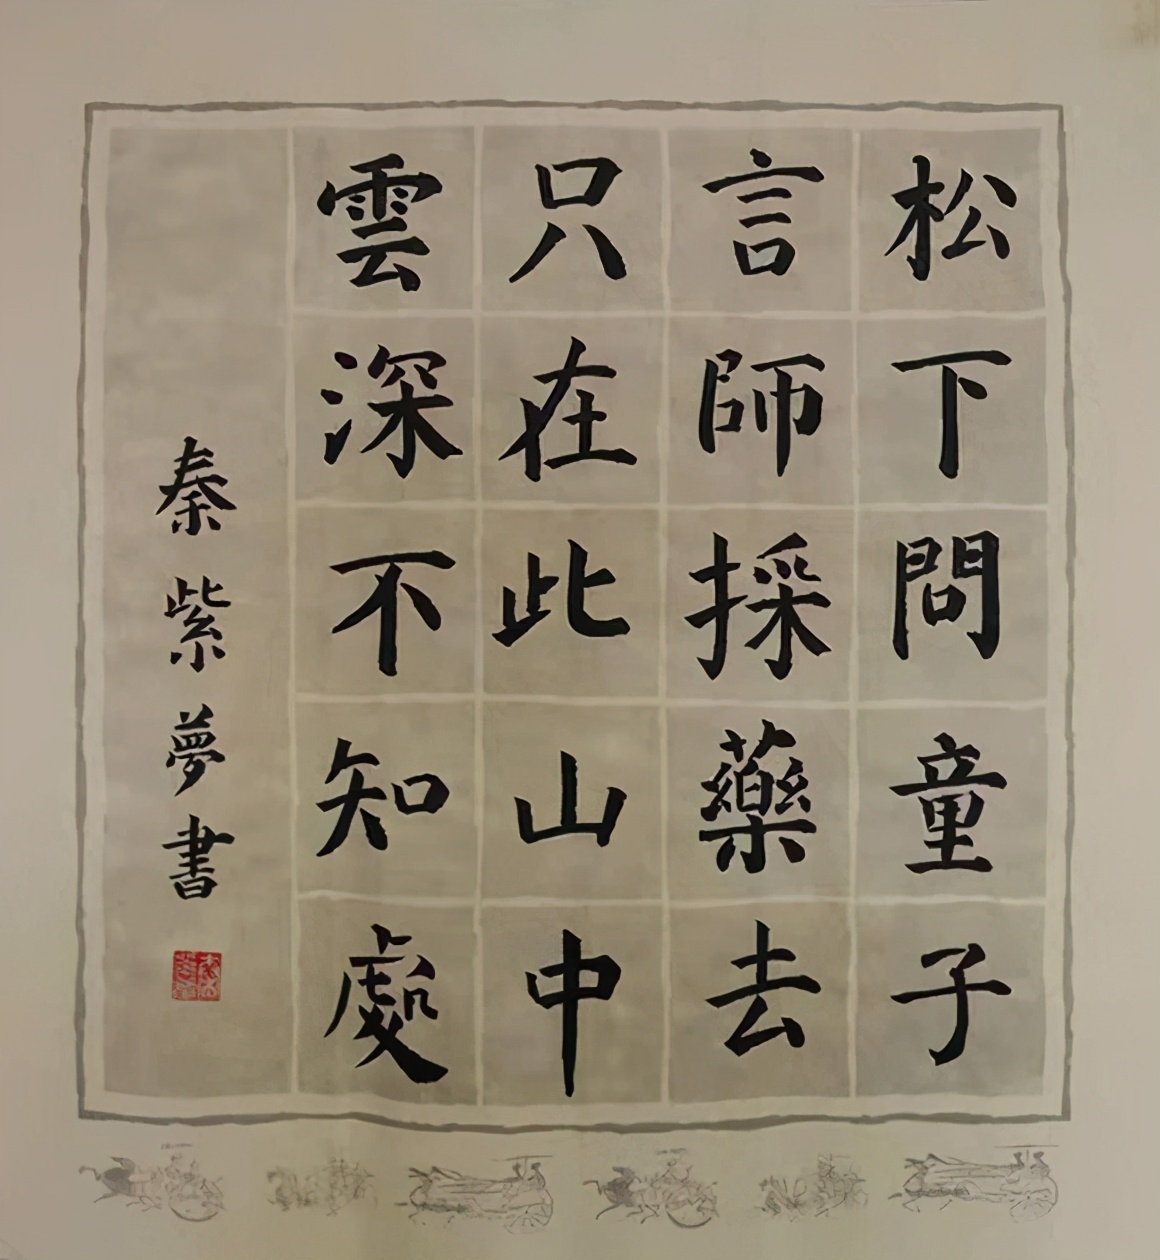 松下問童子
言師採藥去
只在此山中
雲深不知處
秦紫夢書